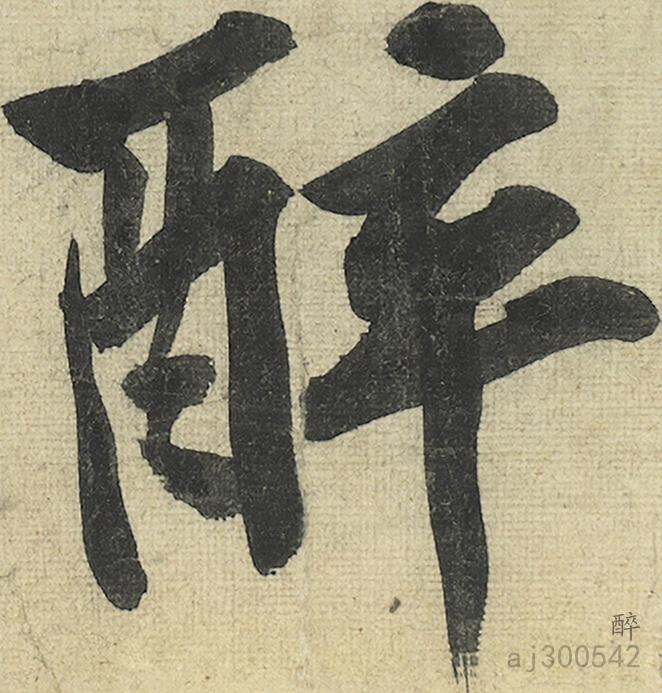 醉
醉
aj300542